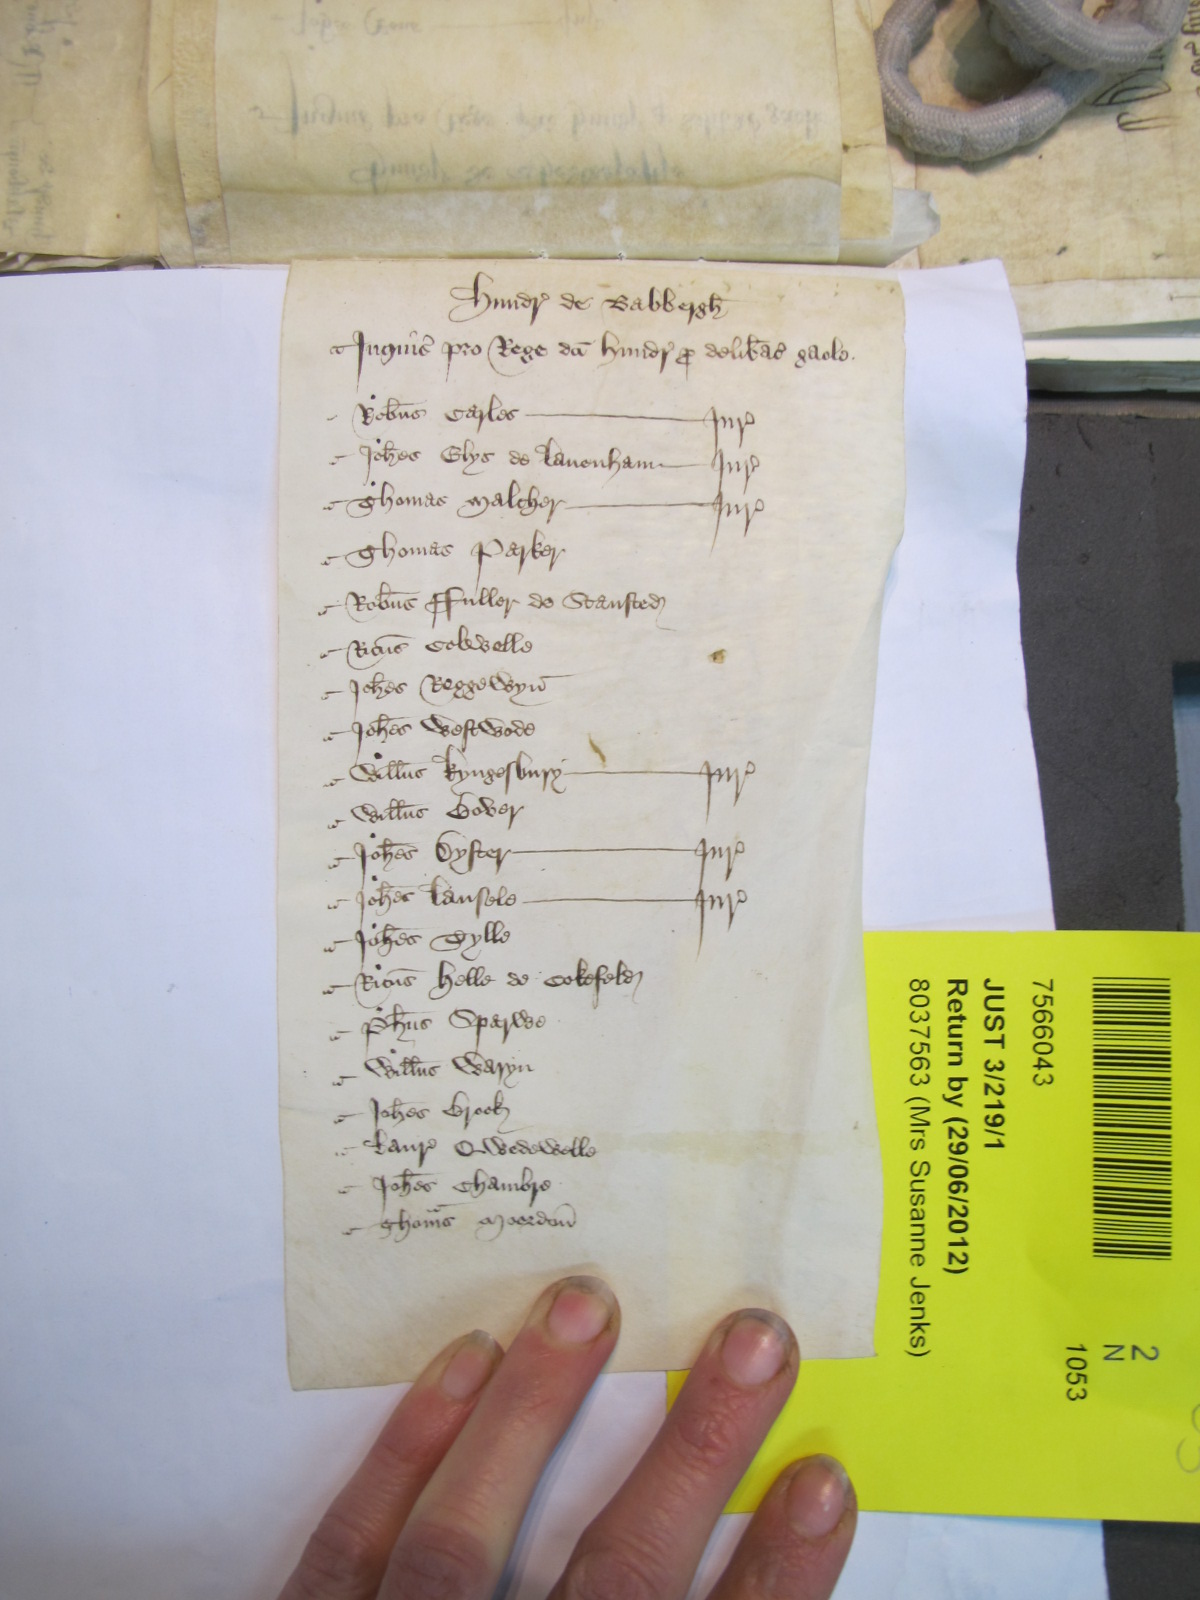 Hundr' de Babbergh
Inquis' pro Rege dc̄i hundr' p delib'ac' gaole.
Rob̄us Carles Jur'
Joh̄es Elys de Lauenham Jur'
Thomas Malcher Jur'
Thomas Parker
Rob̄us ffuller de Stansted
Ric̄us Cobwelle
Joh̄es Reggewyn̄
Joh̄es Westwode
Will̄us Kyngesbury Jur'
Will̄us Bower
Joh̄es Oyster Jur'
Joh̄es Caufele Jur'
Joh̄es Sylle
Ric̄us Helle de Cokefeld
Ph̄us Sparwe
Will̄us Waryn
Joh̄es Brook
Laur' Wedewelle
Joh̄es Chambre
Thom̄s
7566043
JUST 3/219/1
Return by (29/06/2012)
8037563 (Mrs Susanne Jenks)
2
N
1053